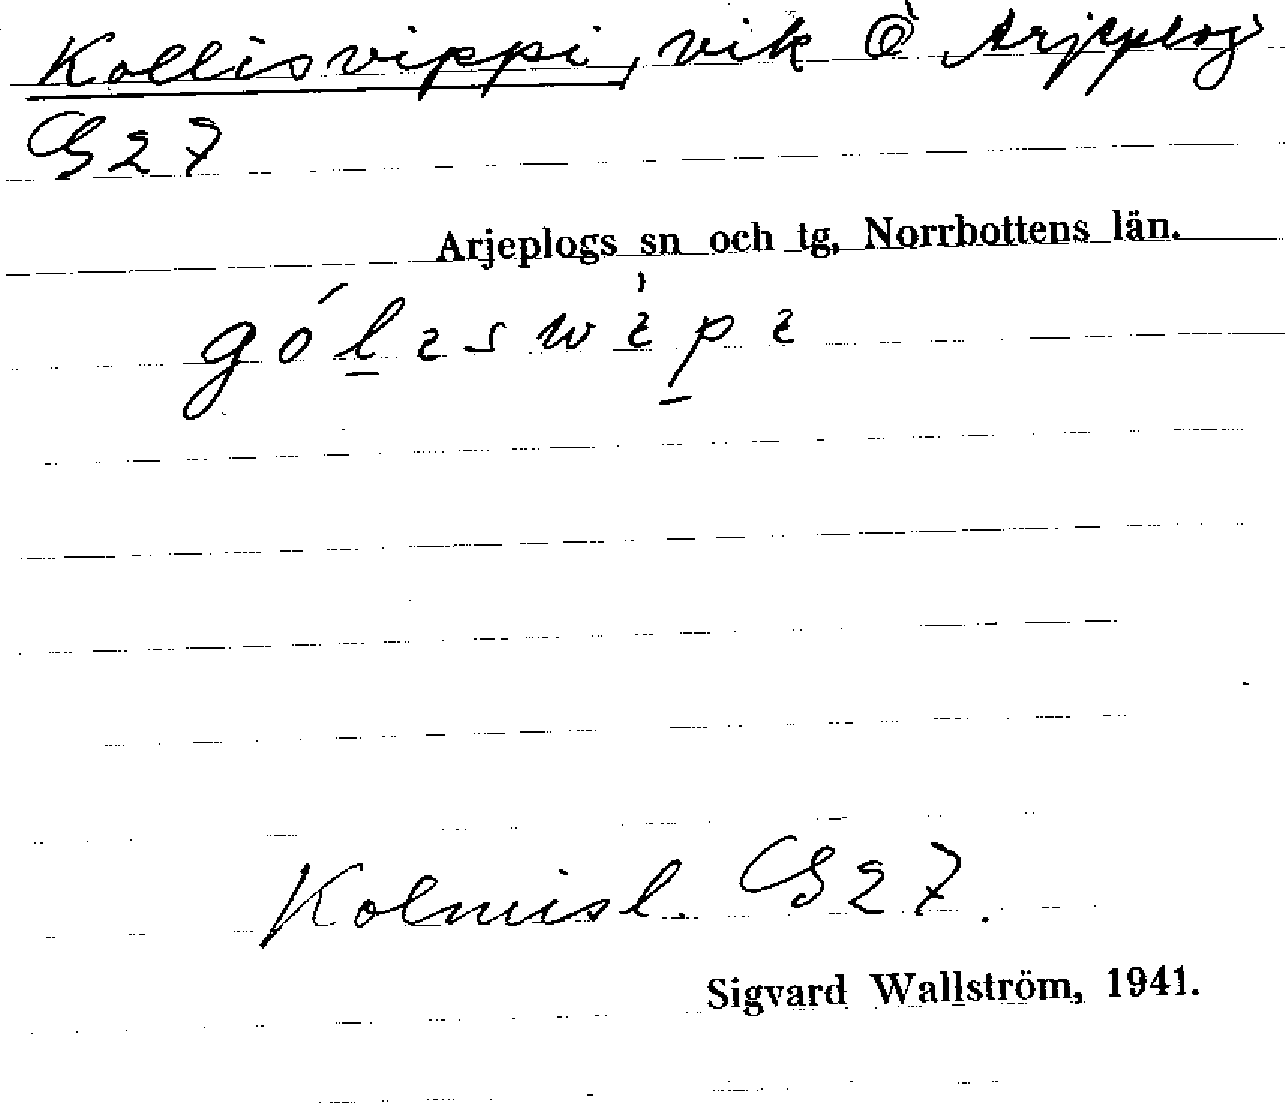 Kollisvippi, vik @ Arjeplog
G27
Arjeplogs sn och tg, Norrbottens län.
Kolmisl. G27.
Sigvard Wallström, 1941.